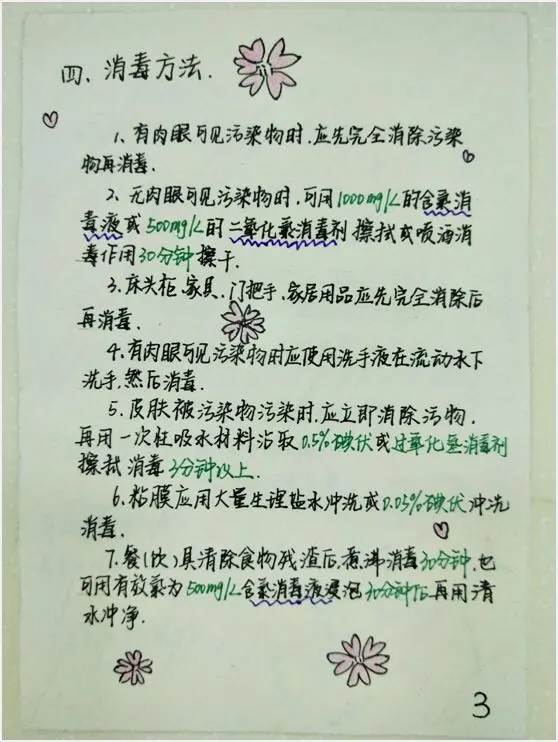 四、消毒方法.
1、有肉眼可见污染物时.应先完全消除污染
物再消毒.
2、无肉眼可见污染物时,可用1000mg/L的含氯消
毒液或500mg/L的二氧化氯消毒剂擦拭或喷洒消
毒作用30分钟擦干.
3、床头柜、家具、门把手、家居用品应先完全消除后
再消毒.
4、有肉眼可见污染物时应使用洗手液在流动水下
洗手,然后消毒.
5、皮肤被污染物污染时.应立即消除污物.
再用一次性吸水材料沾取0.5%碘伏或过氧化氢消毒剂
擦拭消毒3分钟以上.
6、粘膜应用大量生理盐水冲洗或0.05%碘伏冲洗
消毒.
7、餐(饮)具清除食物残渣后,煮沸消毒30分钟,也
可用有效氯为500mg/L含氯消毒液浸泡30分钟后.再用清
水冲净.
3